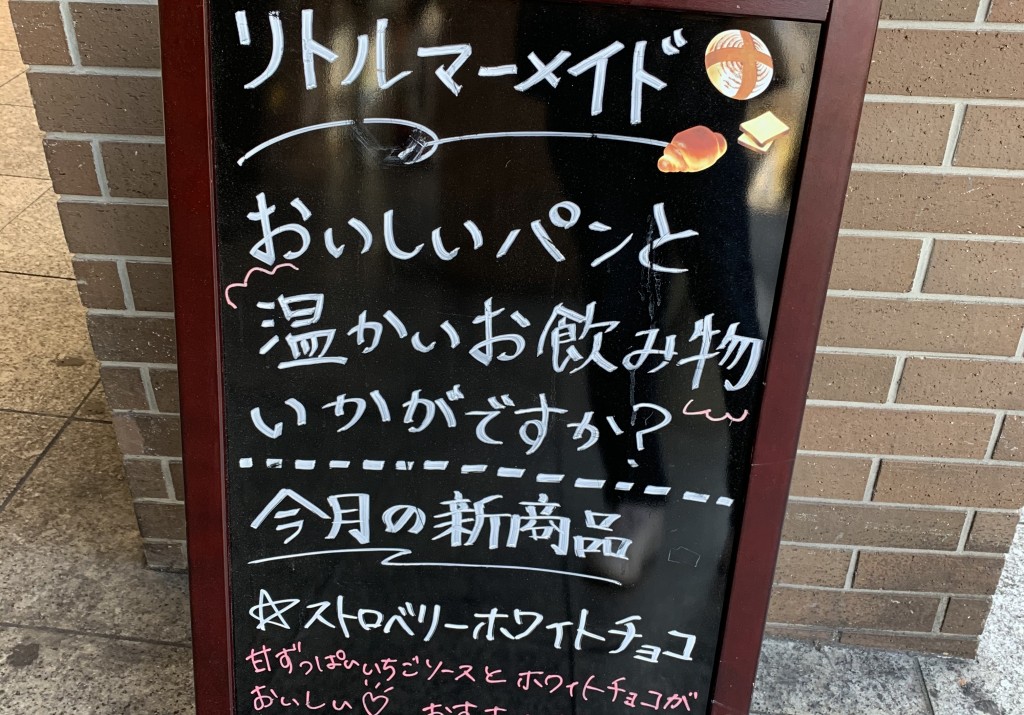 リトルマーメイド
おいしいパンと
温かいお飲み物
いかがですか?
今月の新商品
☆ストロベリーホワイトチョコ
甘ずっぱいいちごソースと ホワイトチョコが
おいしい♡